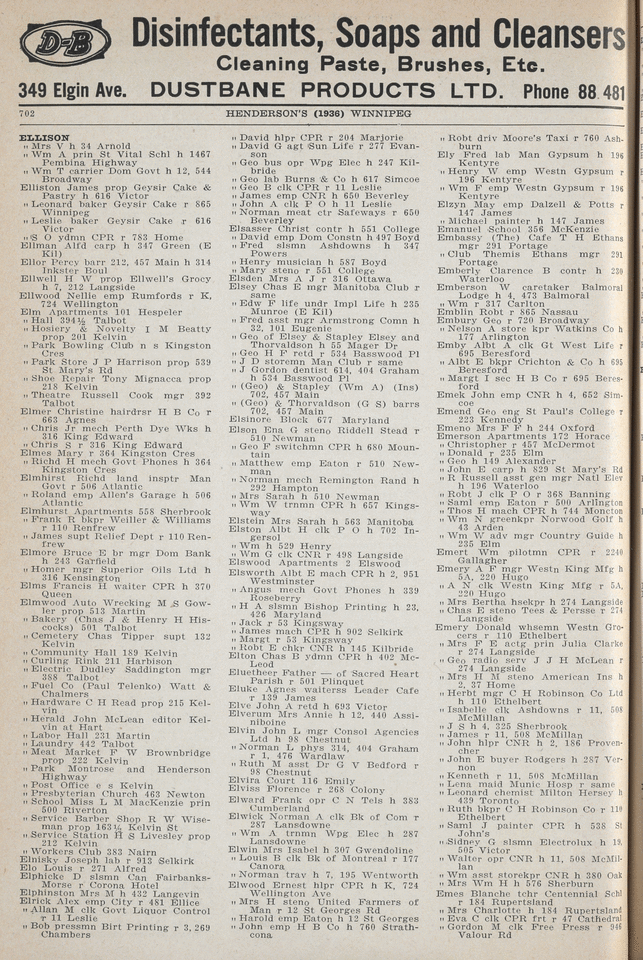 D-B
Disinfectants, Soaps and Cleansers
Cleaning Paste, Brushes, Etc.
349 Elgin Ave. DUSTBANE PRODUCTS LTD. Phone 88 481
702 HENDERSON'S (1936) WINNIPEG
ELLISON
" Mrs V h 34 Arnold
" Wm A prin St Vital Schl h 1467
Pembina Highway
" Wm T carrier Dom Govt h 12, 544
Broadway
Elliston James prop Geysir Cake &
Pastry h 616 Victor
" Leonard baker Geysir Cake r 865
Winnipeg
" Leslie baker Geysir Cake r 616
Victor
" S O ydmn CPR r 783 Home
Ellman Alfd carp h 347 Green (E
Kil)
Ellor Percy barr 212, 457 Main h 314
Inkster Boul
Ellwell H W prop Ellwell's Grocy
h 7, 212 Langside
Ellwood Nellie emp Rumfords r K,
724 Wellington
Elm Apartments 101 Hespeler
" Hall 394½ Talbot
" Hosiery & Novelty I M Beatty
prop 201 Kelvin
" Park Bowling Club n s Kingston
Cres
" Park Store J P Harrison prop 539
St Mary's Rd
" Shoe Repair Tony Mignacca prop
218 Kelvin
" Theatre Russell Cook mgr 392
Talbot
Elmer Christine hairdrsr H B Co r
663 Agnes
" Chris Jr mech Perth Dye Wks h
316 King Edward
" Chris S r 316 King Edward
Elmes Mary r 364 Kingston Cres
" Richd H mech Govt Phones h 364
Kingston Cres
Elmhirst Richd land insptr Man
Govt r 506 Atlantic
" Roland emp Allen's Garage h 506
Atlantic
Elmhurst Apartments 558 Sherbrook
" Frank R bkpr Weiller & Williams
r 110 Renfrew
" James supt Relief Dept r 110 Ren-
frew
Elmore Bruce E br mgr Dom Bank
h 243 Garfield
" Homer mgr Superior Oils Ltd h
316 Kensington
Elms Francis H waiter CPR h 370
Queen
Elmwood Auto Wrecking M S Gow-
ler prop 513 Martin
" Bakery (Chas J & Henry H His-
cocks) 501 Talbot
" Cemetery Chas Tipper supt 132
Kelvin
" Community Hall 189 Kelvin
" Curling Rink 211 Harbison
" Electric Dudley Saddington mgr
388 Talbot
" Fuel Co (Paul Telenko) Watt &
Chalmers
" Hardware C H Read prop 215 Kel-
vin
" Herald John McLean editor Kel-
vin at Hart
" Labor Hall 231 Martin
" Laundry 442 Talbot
" Meat Market F W Brownbridge
prop 222 Kelvin
" Park Montrose and Henderson
Highway
" Post Office e s Kelvin
" Presbyterian Church 463 Newton
" School Miss L M MacKenzie prin
500 Riverton
" Service Barber Shop R W Wise-
man prop 163½ Kelvin St
" Service Station H S Livesley prop
212 Kelvin
" Workers Club 383 Nairn
Elnisky Joseph lab r 913 Selkirk
Elo Louis r 271 Alfred
Elphicke D slsmn Can Fairbanks-
Morse r Corona Hotel
Elphinston Mrs M h 432 Langevin
Elrick Alex emp City r 481 Ellice
" Allan M clk Govt Liquor Control
r 11 Leslie
" Bob pressmn Birt Printing r 3, 269
Chambers
" David hlpr CPR r 204 Marjorie
" David G agt Sun Life r 277 Evan-
son
" Geo bus opr Wpg Elec h 247 Kil-
bride
" Geo lab Burns & Co h 617 Simcoe
" Geo B clk CPR r 11 Leslie
" James emp CNR h 650 Beverley
" John A clk P O h 11 Leslie
" Norman meat ctr Safeways r 650
Beverley
Elsasser Christ contr h 551 College
" David emp Dom Constn h 497 Boyd
" Fred slsmn Ashdowns h 347
Powers
" Henry musician h 587 Boyd
" Mary steno r 551 College
Elsden Mrs A J r 316 Ottawa
Elsey Chas E mgr Manitoba Club r
same
" Edw F life undr Impl Life h 235
Munroe (E Kil)
" Fred asst mgr Armstrong Conn h
32, 101 Eugenie
" Geo of Elsey & Stapley Elsey and
Thorvaldson h 55 Mager Dr
" Geo H F retd r 534 Basswood Pl
" J D storemn Man Club r same
" J Gordon dentist 614, 404 Graham
h 534 Basswood Pl
" (Geo) & Stapley (Wm A) (Ins)
702, 457 Main
" (Geo) & Thorvaldson (G S) barrs
702, 457 Main
Elsinore Block 677 Maryland
Elson Ena G steno Riddell Stead r
510 Newman
" Geo F switchmn CPR h 680 Moun-
tain
" Matthew emp Eaton r 510 New-
man
" Norman mech Remington Rand h
292 Hampton
" Mrs Sarah h 510 Newman
" Wm W trnmn CPR h 657 Kings-
way
Elstein Mrs Sarah h 563 Manitoba
Elston Albt H clk P O h 702 In-
gersol
" Wm h 529 Henry
" Wm G clk CNR r 498 Langside
Elswood Apartments 2 Elswood
Elsworth Albt E mach CPR h 2, 951
Westminster
" Angus mech Govt Phones h 339
Roseberry
" H A slsmn Bishop Printing h 23,
426 Maryland
" Jack r 53 Kingsway
" James mach CPR h 902 Selkirk
" Margt r 53 Kingsway
" Robt E chkr CNR h 145 Kilbride
Elton Chas B ydmn CPR h 402 Mc-
Leod
Eluetheer Father — of Sacred Heart
Parish r 501 Plinquet
Eluke Agnes waiterss Leader Cafe
r 139 James
Elve John A retd h 693 Victor
Elverum Mrs Annie h 12, 440 Assi-
niboine
Elvin John L mgr Consol Agencies
Ltd h 98 Chestnut
" Norman L phys 314, 404 Graham
r 1, 476 Wardlaw
" Ruth M asst Dr G V Bedford r
98 Chestnut
Elvira Court 116 Emily
Elviss Florence r 268 Colony
Elward Frank opr C N Tels h 383
Cumberland
Elwick Norman A clk Bk of Com r
287 Lansdowne
" Wm A trnmn Wpg Elec h 287
Lansdowne
Elwin Mrs Isabel h 307 Gwendoline
" Louis B clk Bk of Montreal r 177
Canora
" Norman trav h 7, 195 Wentworth
Elwood Ernest hlpr CPR h K, 724
Wellington Ave
" Mrs H steno United Farmers of
Man r 12 St Georges Rd
" Harold emp Eaton h 12 St Georges
" John emp H B Co h 760 Strath-
cona
" Robt driv Moore's Taxi r 760 Ash-
burn
Ely Fred lab Man Gypsum h 196
Kentyre
" Henry W emp Westn Gypsum r
196 Kentyre
" Wm F emp Westn Gypsum r 196
Kentyre
Elzyn May emp Dalzell & Potts r
147 James
" Michael painter h 147 James
Emanuel School 356 McKenzie
Embassy (The) Cafe T H Ethans
mgr 291 Portage
" Club Themis Ethans mgr 291
Portage
Emberly Clarence B contr h 230
Waterloo
Emberson W caretaker Balmoral
Lodge h 4, 473 Balmoral
" Wm r 317 Carlton
Emblin Robt r 865 Nassau
Embury Geo r 720 Broadway
" Nelson A store kpr Watkins Co h
177 Arlington
Emby Albt A clk Gt West Life r
695 Beresford
" Albt E bkpr Crichton & Co h 695
Beresford
" Margt I sec H B Co r 695 Beres-
ford
Emek John emp CNR h 4, 652 Sim-
coe
Emend Geo eng St Paul's College r
223 Kennedy
Emeno Mrs F h 244 Oxford
Emerson Apartments 172 Horace
" Christopher r 457 McDermot
" Donald r 235 Elm
" Geo h 149 Alexander
" John E carp h 829 St Mary's Rd
" R Russell asst gen mgr Natl Elev
h 196 Waterloo
" Robt J clk P O r 368 Banning
" Saml emp Eaton r 500 Arlington
" Thos H mach CPR h 744 Moncton
" Wm N greenkpr Norwood Golf h
43 Arden
" Wm W adv mgr Country Guide h
235 Elm
Emert Wm pilotmn CPR r 2240
Gallagher
Emery A F mgr Westn King Mfg h
5A, 220 Hugo
" A N clk Westn King Mfg r 5A,
220 Hugo
" Mrs Bertha hsekpr h 274 Langside
" Chas E steno Tees & Persse r 274
Langside
Emery Donald whsemn Westn Gro-
cers r 110 Ethelbert
" Mrs F E actg prin Julia Clarke
r 274 Langside
" Geo radio serv J J H McLean r
274 Langside
" Mrs H M steno American Ins h
2, 37 Home
" Herbt mgr C H Robinson Co Ltd
h 110 Ethelbert
" Isabelle clk Ashdowns r 11, 508
McMillan
" J S h 4, 325 Sherbrook
" James r 11, 508 McMillan
" John hlpr CNR h 2, 186 Proven-
cher
" John E buyer Rodgers h 287 Ver-
non
" Kenneth r 11, 508 McMillan
" Lena maid Munic Hosp r same
" Leonard chemist Milton Hersey h
439 Toronto
" Ruth bkpr C H Robinson Co r 110
Ethelbert
" Saml J painter CPR h 538 St
John's
" Sidney G slsmn Electrolux h 19,
505 Victor
" Walter opr CNR h 11, 508 McMil-
lan
" Wm asst storekpr CNR h 380 Oak
" Mrs Wm H h 576 Sherburn
Emes Blanche tchr Centennial Schl
r 184 Rupertsland
" Mrs Charlotte h 184 Rupertsland
" Eva C clk CPR frt r 47 Cathedral
" Gordon M clk Free Press r 946
Valour Rd